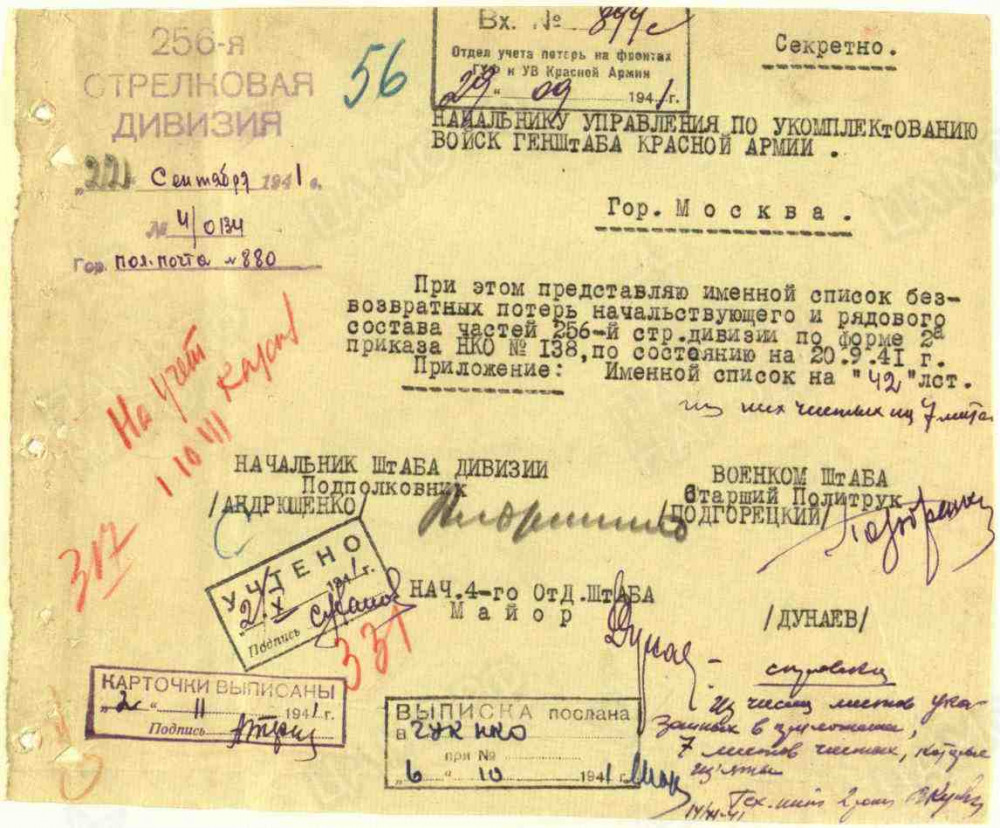 256-я
ОТРЕЛКОВАЯ
ДИВИЗИЯ
"22" Сентября 1941 г.
№ 4/0134
Гор. пол. почта № 880
56
Вх. № 844с
Отдел учета потерь на фронтах
ГУФ и УВ Красной Армии
29 " 09 1941 г.
Секретно.
НАЧАЛЬНИКУ УПРАВЛЕНИЯ ПО УКОМПЛЕКтОВАНИЮ
ВОЙСК ГЕНШтАБА КРАСНОЙ АРМИИ .
Гор. Москва .
При этом представляю именной список без-
возвратных потерь начальствующего и рядового
состава частей 256-й стр.дивизии по форме 2а
приказа НКО № 138,по состоянию на 20.9.41 г.
Приложение: Именной список на "42" лст.
из них чистых 7 листов
На учет
1 10 41
НАЧАЛЬНИК ШтАБА ДИВИЗИИ
Подполковник
/АНДРЮЩЕНКО/
ВОЕНКОМ ШтАБА
Старший Политрук
/ПОДГОРЕЦКИЙ/
307
УЧТЕНО
"2" X 1941 г.
Подпись
331
НАЧ.4-го ОтД.ШтАБА
Майор
/ДУНАЕВ/
КАРТОЧКИ ВЫПИСАНЫ
"2" 11 1941 г.
Подпись
ВЫПИСКА послана
в ГУК НКО
при №
"6 " 10 1941 г.
справка
Из числа листов ука-
занных в приложении,
7 листов чистых, которые
изъяты
Тех.